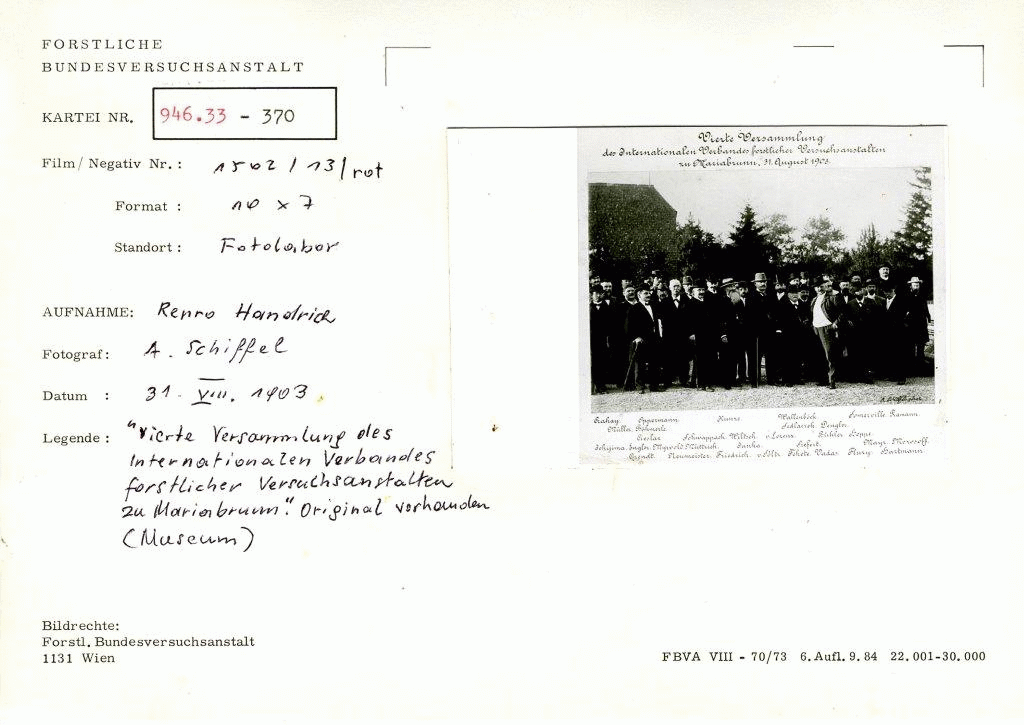 FORSTLICHE
BUNDESVERSUCHSANSTALT
KARTEI NR. 946.33 - 370
Film/Negativ Nr.: 1502/13/rot
Format : 10 x 7
Standort: Fotolabor
AUFNAHME: Repro Handrich
Fotograf: A. Schiffel
Datum : 31. VIII. 1903
Legende: "Vierte Versammlung des
Internationalen Verbandes
forstlicher Versuchsanstalten
zu Mariabrunn". Original vorhanden
(Museum)
Vierte Versammlung
des Internationalen Verbandes forstlicher Versuchsanstalten
zu Mariabrunn, 31. August 1903.
Crahay. Oppermann Kunze. Wallenböck Somerville Ramann.
Müller. Bohmerle. Sedlaczek. Dengler.
Cieslar Schwappach. Wiltsch. v. Lorenz. Bühler. Beppe.
Schijima. Engler. Ngwold Mittrich. Janka. Siefert. Mayr. Morosoff.
Grendt. Neumeister. Friedrich. v. Sölti. Fekete. Vadas. Flury. Hartmann
Bildrechte:
Forstl. Bundesversuchsanstalt
1131 Wien
FBVA VIII - 70/73 6. Aufl. 9. 84 22.001-30.000